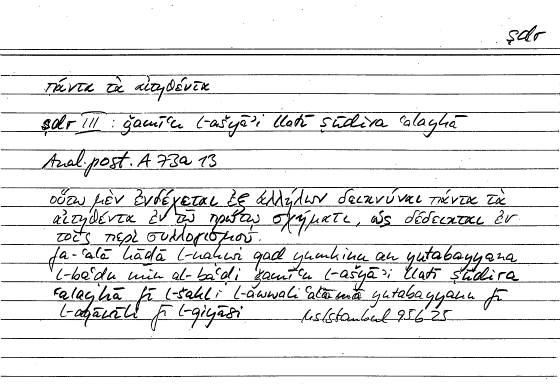 ṣdr
πάντα τὰ αἰτηθέντα
ṣdr III : ǧamīʿu l-ašyāʾi llatī ṣūdira ʿalayhā
Anal. post. A 73a 13
οὕτω μὲν ἐνδέχεται ἐξ ἀλλήλων δεικνύναι πάντα τὰ
αἰτηθέντα ἐν τῷ πρώτῳ σχήματι, ὡς δέδεικται ἐν
τοῖς περὶ συλλογισμοῦ.
fa-ʿalā hāḏā l-naḥwi qad yumkinu an yutabayyana
l-baʿḍu min al-baʿḍi ǧamīʿu l-ašyāʾi llatī ṣūdira
ʿalayhā fī l-šakli l-awwali ʿalā mā yutabayyanu fī
l-aqāwīli fī l-qiyāsi